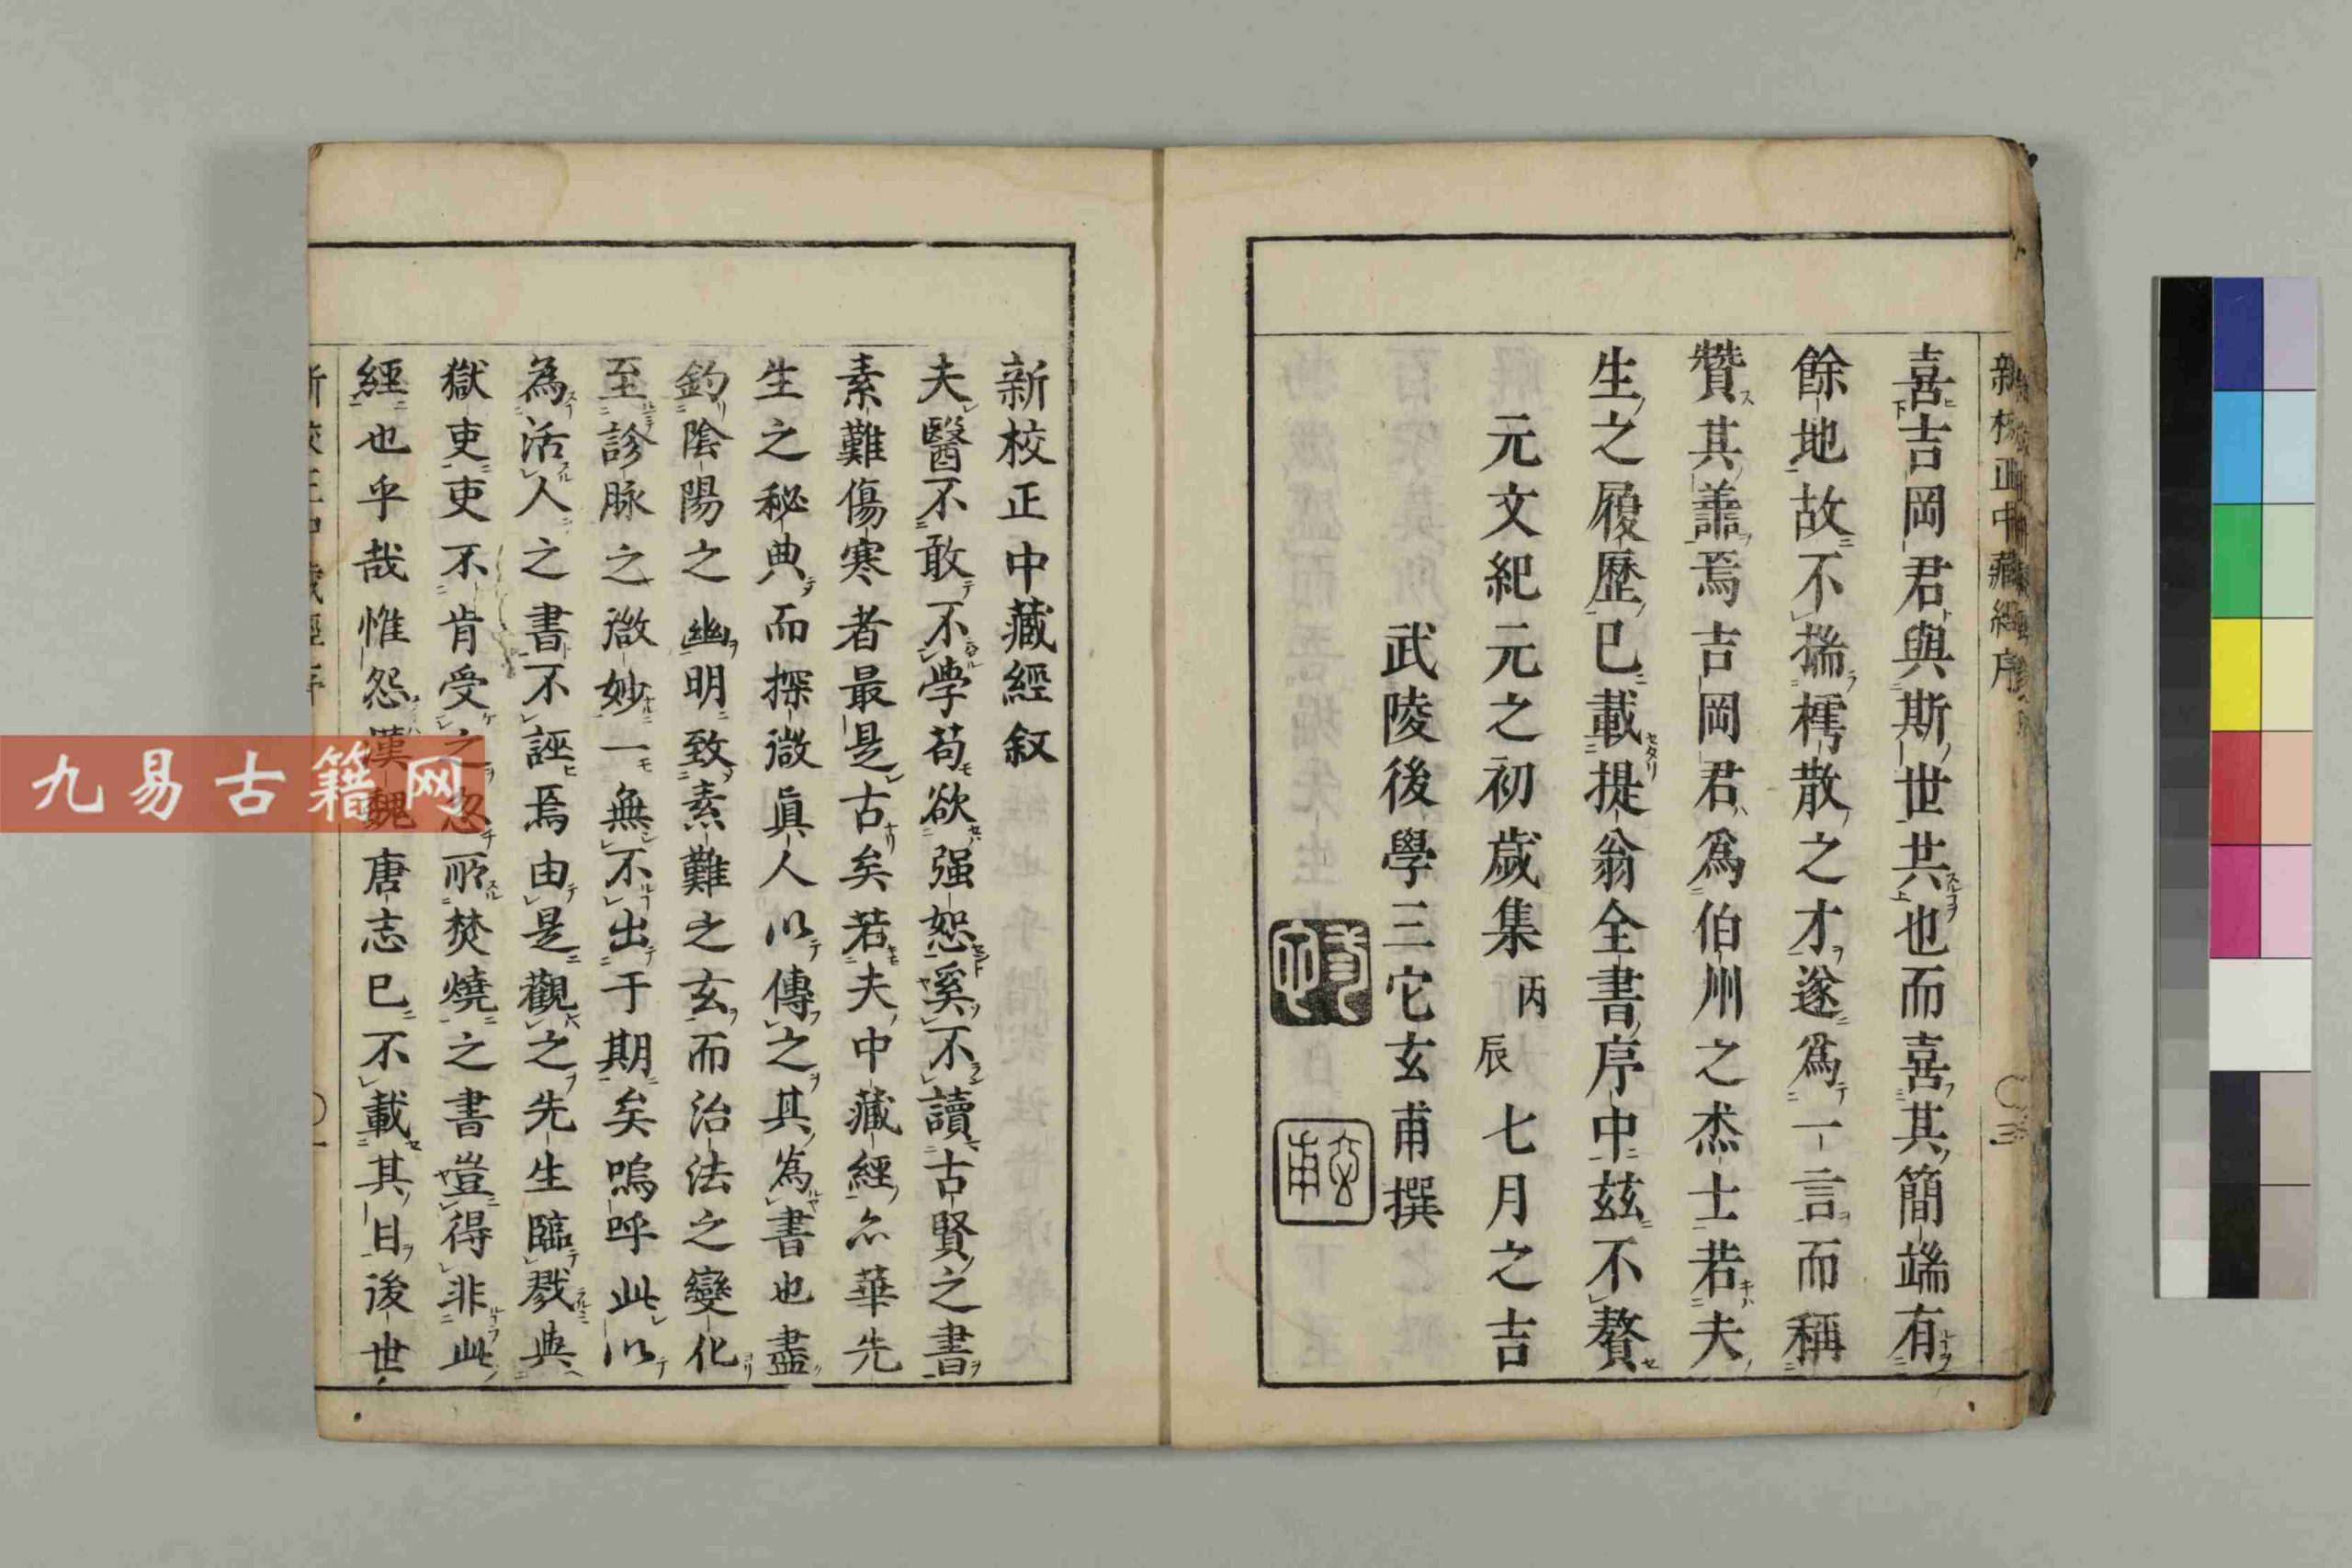 新校正中藏經序
喜吉岡君與斯世共也而喜其簡端有
餘地故不揣樗散之才遂爲一言而稱
贊其譱焉吉岡君爲伯州之杰士若夫
生之履歷已載提翁全書序中茲不贅
元文紀元之初歲集丙辰七月之吉
武陵後學三宅玄甫撰
玄甫
新校正中藏經叙
夫醫不敢不學苟欲强恕奚不讀古賢之書
素難傷寒者最是古矣若夫中藏經亦華先
生之秘典而探微眞人以傳之其為書也盡
鈞陰陽之幽明致素難之玄而治法之變化
至診脉之微妙一無不出于期矣嗚呼此以
為活人之書不誣焉由是觀之先生臨戮與
獄吏吏不肯受之忽所焚燒之書豈得非此
經也乎哉惟怨漢魏唐志已不載其目後世
九易古籍网